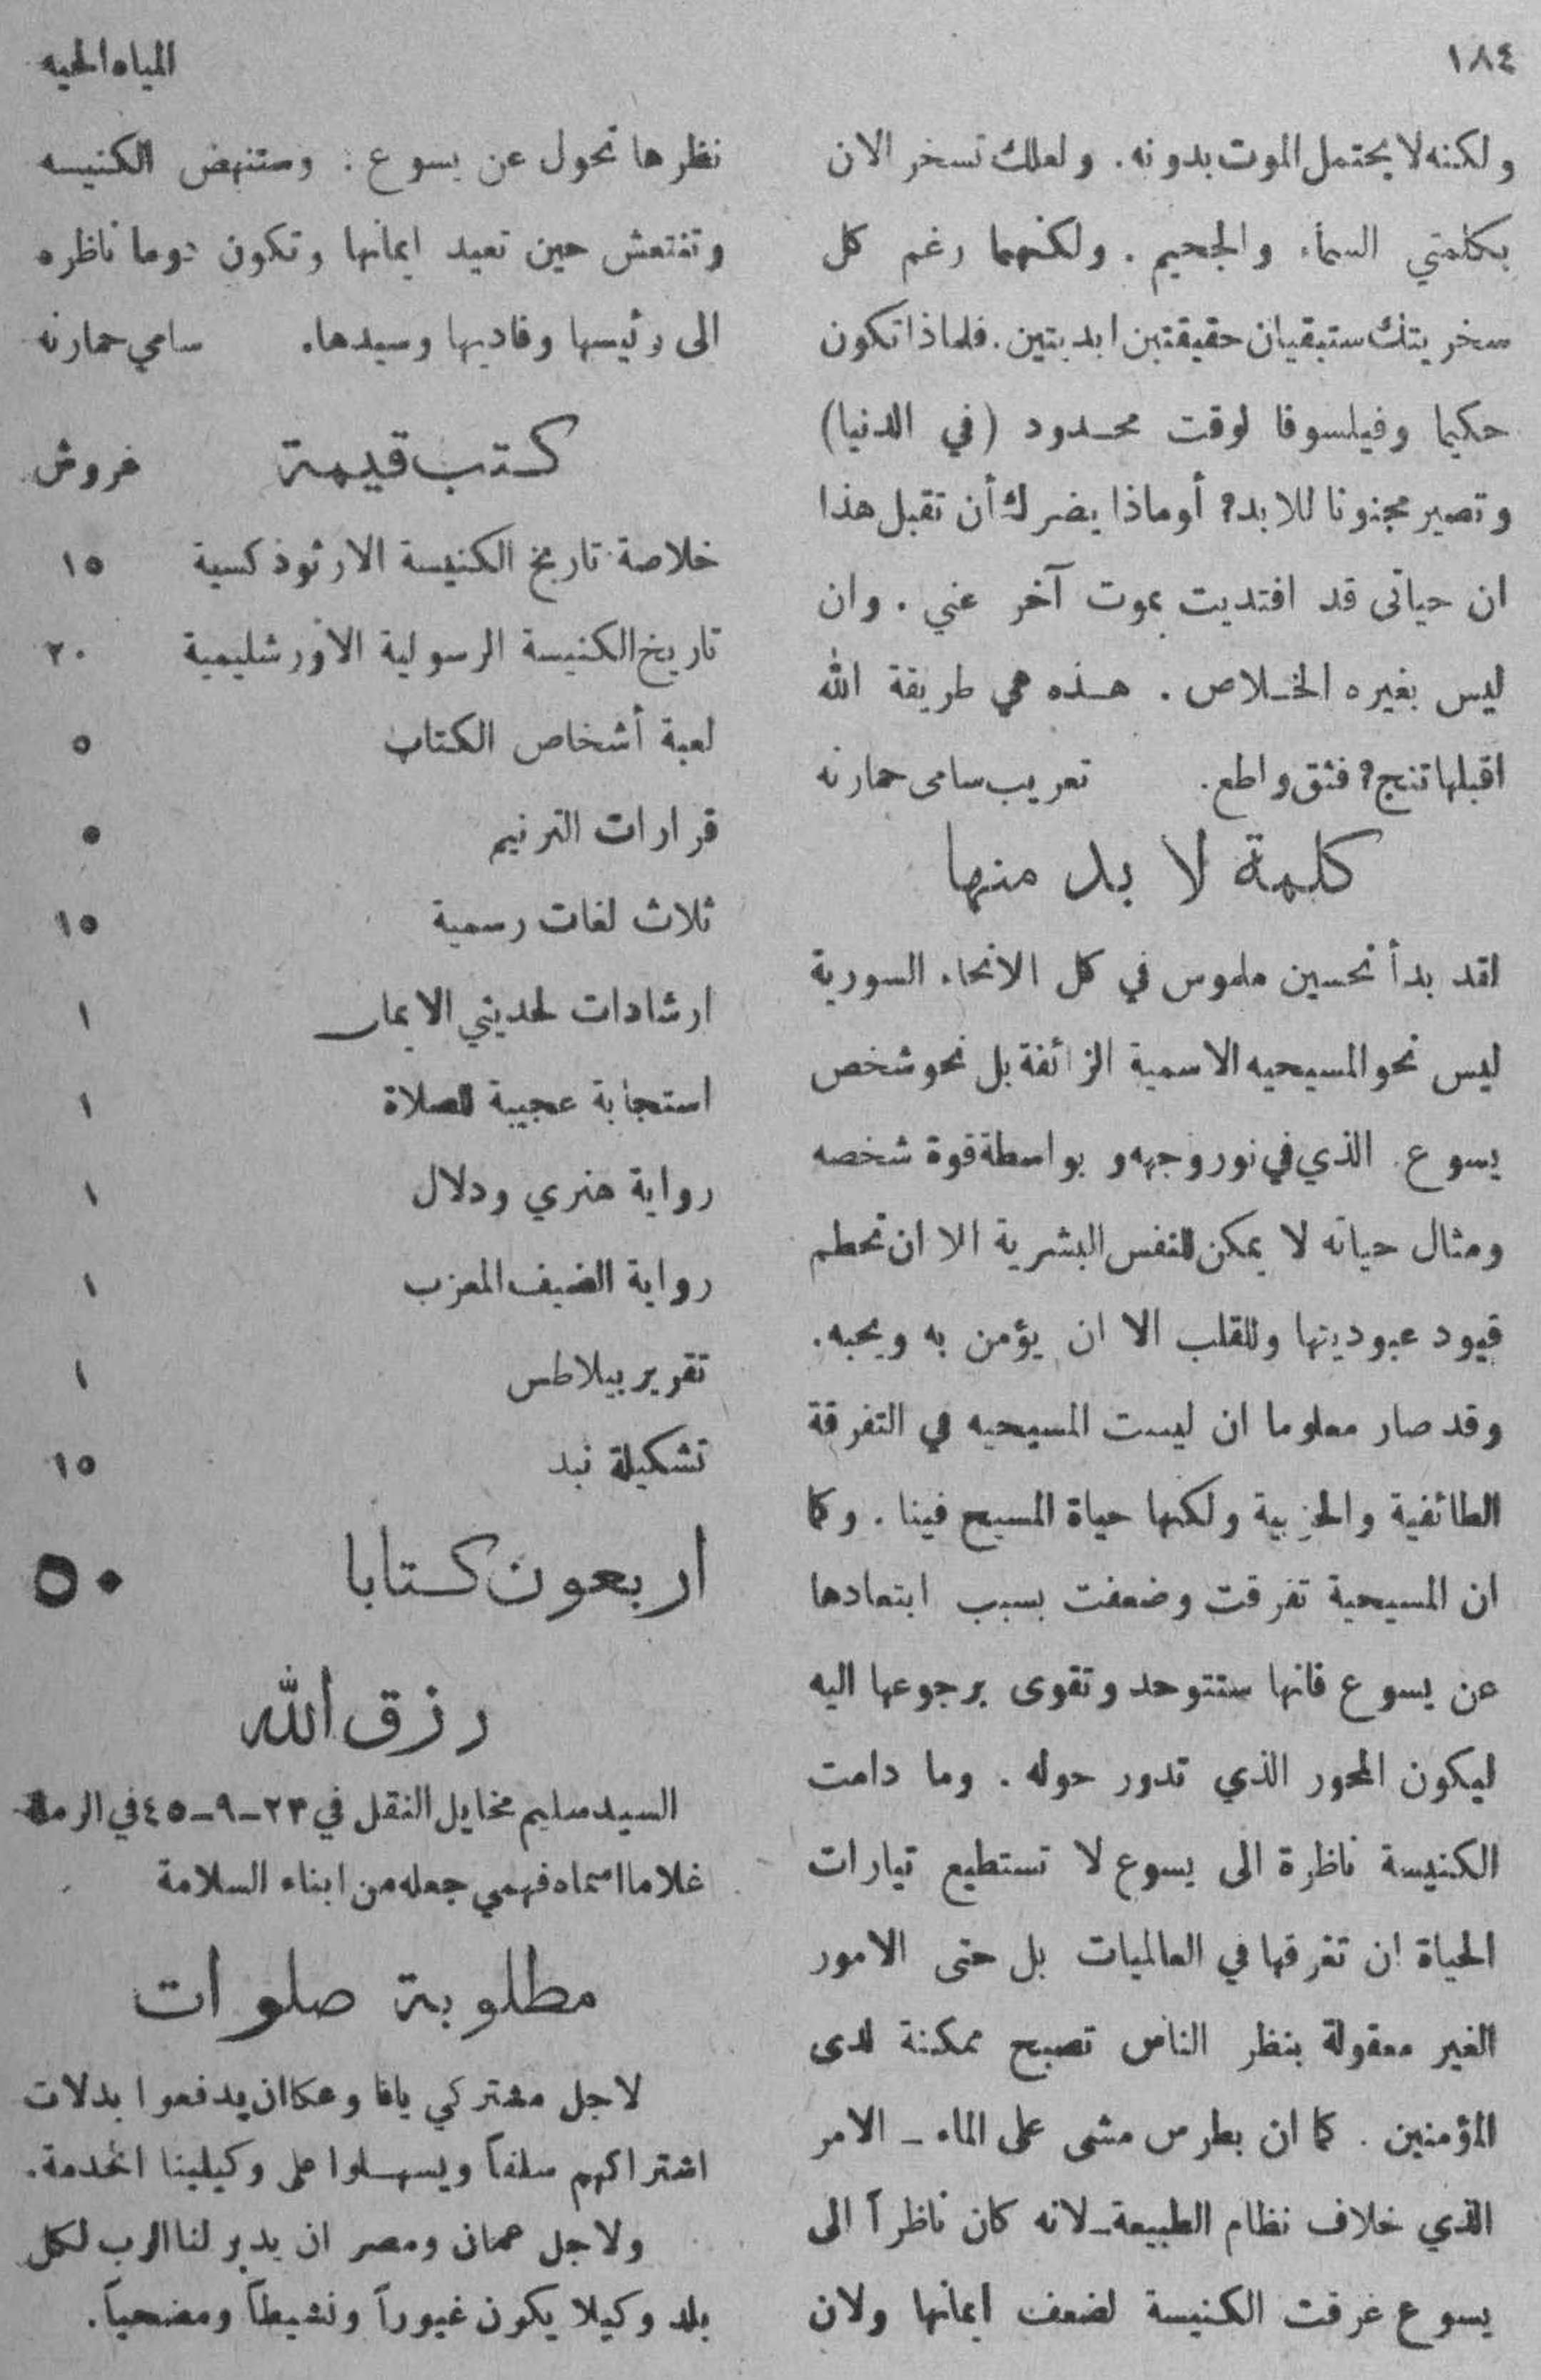 ١٨٤
المياه الحيه
ولكنه لا يحتمل الموت بدونه. ولعلك تسخر الان
بكلمتي السماء والجحيم. ولكنهما رغم كل
سخريتك ستبقيان حقيقتين ابديتين. فلماذا تكون
حكيما وفيلسوفا لوقت محدود (في الدنيا)
وتصير مجنونا للابد؟ أوماذا يضرك أن تقبل هذا
ان حياتى قد افتديت بموت آخر عني. وان
ليس بغيره الخلاص. هذه هي طريقة الله
اقبلها تنج؟ فثق واطع. تعريب سامى حمارنه
كلمة لا بد منها
لقد بدأ تحسين ملموس في كل الانحاء السورية
ليس نحو المسيحيه الاسمية الزائفة بل نحو شخص
يسوع. الذي في نور وجهه و بواسطة قوة شخصه
ومثال حياته لا يمكن للنفس البشرية الا ان تحطم
قيود عبوديتها وللقلب الا ان يؤمن به ويحبه.
وقد صار معلوما ان ليست المسيحيه في التفرقة
الطائفية والحزبية ولكنها حياة المسيح فينا. وكما
ان المسيحية تفرقت وضعفت بسبب ابتعادها
عن يسوع فانها ستتوحد وتقوى برجوعها اليه
ليكون المحور الذي تدور حوله. وما دامت
الكنيسة ناظرة الى يسوع لا تستطيع تيارات
الحياة ان تغرقها في العالميات بل حتى الامور
الغير معقولة بنظر الناس تصبح ممكنة لدى
المؤمنين. كما ان بطرس مشى على الماء - الامر
الذي خلاف نظام الطبيعة - لانه كان ناظراً الى
يسوع غرقت الكنيسة لضعف ايمانها ولان
نظرها تحول عن يسوع: وستنهض الكنيسه
وتنتعش حين تعيد ايمانها وتكون دوما ناظره
الى رئيسها وفاديها وسيدها. سامي حمارنه
كتب قيمة غروش
خلاصة تاريخ الكنيسة الارثوذكسية ١٥
تاريخ الكنيسة الرسولية الاورشليمية ٢٠
لعبة أشخاص الكتاب ٥
قرارات الترنيم ٥
ثلاث لغات رسمية ١٥
ارشادات لحديثي الايمان ١
استجابة عجيبة للصلاة ١
رواية هنري ودلال ١
رواية الضيف المعزب ١
تقرير بيلاطس ١
تشكيلة نبذ ١٥
اربعون كتابا ٥٠
رزق الله
السيد سليم مخايل النقل في ٢٣-٩-٤٥ في الرملة
غلاما اسماه فهمي جعله من ابناء السلامة
مطلوبة صلوات
لاجل مشتركي يافا وعكا ان يدفعوا بدلات
اشتراكهم سلفاً ويسهلوا على وكيلينا الخدمة.
ولاجل عمان ومصر ان يدبر لنا الرب لكل
بلد وكيلا يكون غيوراً ونشيطاً ومضحياً.